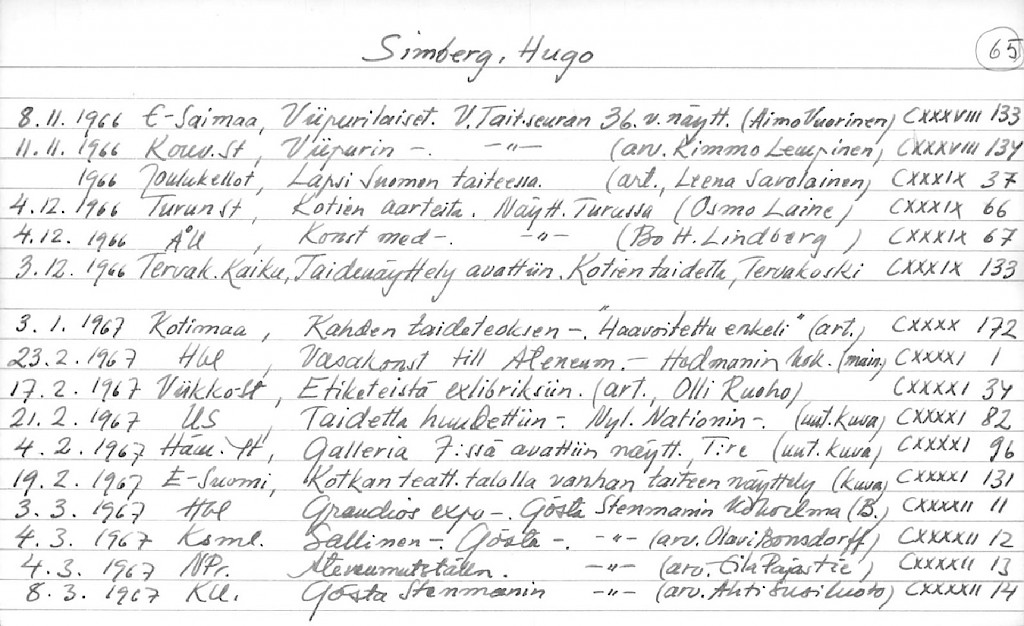 Simberg, Hugo 65
8.11.1966 E-Saimaa, Viipurilaiset. V.Tait.seuran 36.v.näytt. (Aimo Vuorinen) CXXXVIII 133
11.11.1966 Kouv.St, Viipurin -. -"- (arv. Kimmo Leupinen) CXXXVIII 134
1966 Joulukellot, Lapsi Suomen taiteessa. (art., Leena Savolainen) CXXXIX 37
4.12.1966 TurunSt, Kotien aarteita. Näytt. Turussa (Osmo Laine) CXXXIX 66
4.12.1966 ÅU, Konst med-. -"- (Bo H. Lindberg) CXXXIX 67
3.12.1966 Tervak.Kaiku, Taidenäyttely avattiin. Kotien taidetta, Tervakoski CXXXIX 133
3.1.1967 Kotimaa, Kahden taideteoksen -. "Haavoitettu enkeli" (art.) CXXXX 172
23.2.1967 Hbl, Vasakonst till Ateneum. - Hedmanin kok. (main) CXXXXI 1
17.2.1967 ViikkoSt, Etiketeistä exlibriksiin. (art., Olli Ruoho) CXXXXI 34
21.2.1967 US, Taidetta huudettiin -. Nyl. Nationin -. (uut. kuva) CXXXXI 82
4.2.1967 Häm. St, Galleria 7:ssä avattiin näytt., T:re (uut. kuva) CXXXXI 96
19.2.1967 E-Suomi, Kotkan teatt.talolla vanhan taiteen näyttely (kuva) CXXXXI 131
3.3.1967 Hbl Grandios expo -. Gösta Stenmanin kokoelma (B.) CXXXXII 11
4.3.1967 Ksml. Sallinen -. Gösta -. -"- (arv. Olavi Bonsdorff) CXXXXII 12
4.3.1967 NPr. Ateneumutställn. -"- (arv. Pajastie) CXXXXII 13
8.3.1967 KU. Gösta Stenmanin -"- (arv. Ahti Susiluoto) CXXXXII 14